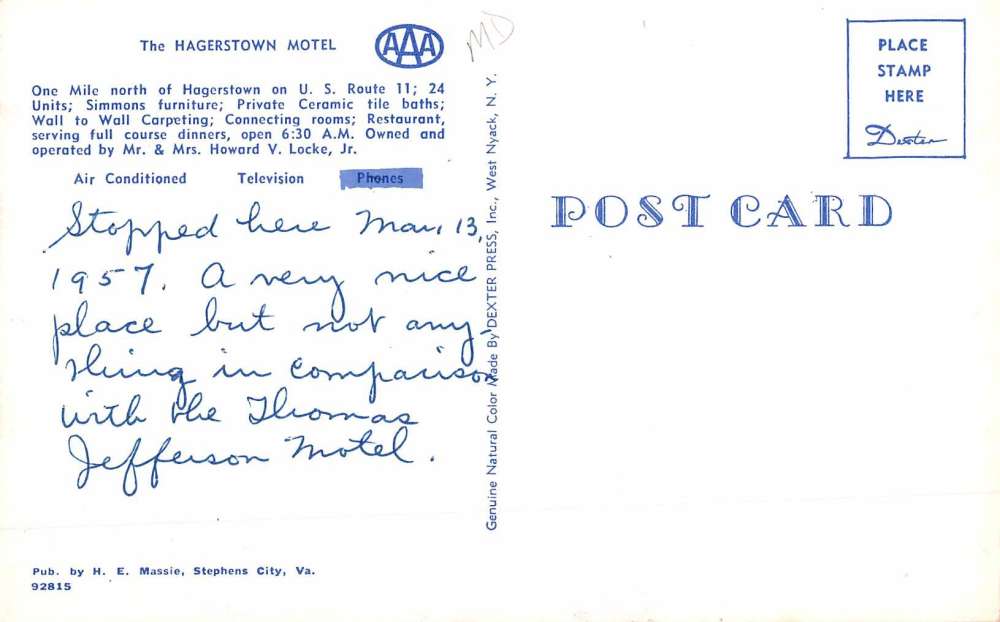 The HAGERSTOWN MOTEL
AAA
MD
One Mile north of Hagerstown on U. S. Route 11; 24
Units; Simmons furniture; Private Ceramic tile baths;
Wall to Wall Carpeting; Connecting rooms; Restaurant,
serving full course dinners, open 6:30 A.M. Owned and
operated by Mr. & Mrs. Howard V. Locke, Jr.
Air Conditioned Television Phones
Stopped here Mar. 13,
1957. A very nice
place but not any-
thing in comparison
with the Thomas
Jefferson Motel.
Pub. by H. E. Massie, Stephens City, Va.
92815
Genuine Natural Color Made By DEXTER PRESS, Inc., West Nyack, N. Y.
PLACE
STAMP
HERE
Dexter
POST CARD